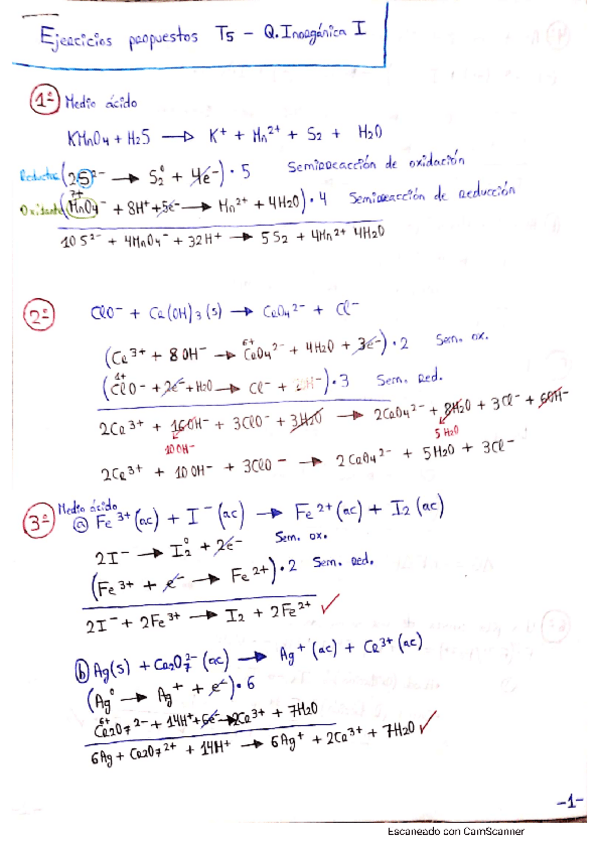 Ejercicios propuestos T5 - Q.Inorgánica I
1º Medio ácido
KMnO4 + H2S → K+ + Mn2+ + S2 + H2O
Reductor (2S2- → S2^0 + 4e-) · 5 Semirreacción de oxidación
7+
Oxidante (MnO4- + 8H+ + 5e- → Mn2+ + 4H2O) · 4 Semirreacción de reducción
10S2- + 4MnO4- + 32H+ → 5S2 + 4Mn2+ 4H2O
2º ClO- + Cr(OH)3(s) → CrO4 2- + Cl-
(Cr3+ + 8OH- → CrO4 2- + 4H2O + 3e-) · 2 Sem. ox.
(ClO- + 2e- + H2O → Cl- + 2OH-) · 3 Sem. Red.
2Cr3+ + 16OH- + 3ClO- + 3H2O → 2CrO4 2- + 8H2O + 3Cl- + 6OH-
10OH- 5H2O
2Cr3+ + 10OH- + 3ClO- → 2CrO4 2- + 5H2O + 3Cl-
3º Medio ácido
a) Fe3+(ac) + I-(ac) → Fe2+(ac) + I2(ac)
2I- → I2^0 + 2e- Sem. ox.
(Fe3+ + e- → Fe2+) · 2 Sem. Red.
2I- + 2Fe3+ → I2 + 2Fe2+ ✓
b) Ag(s) + Cr2O7 2-(ac) → Ag+(ac) + Cr3+(ac)
(Ag^0 → Ag+ + e-) · 6
6+
Cr2O7 2- + 14H+ + 6e- → 2Cr3+ + 7H2O
6Ag + Cr2O7 2+ + 14H+ → 6Ag+ + 2Cr3+ + 7H2O ✓
-1-
Escaneado con CamScanner